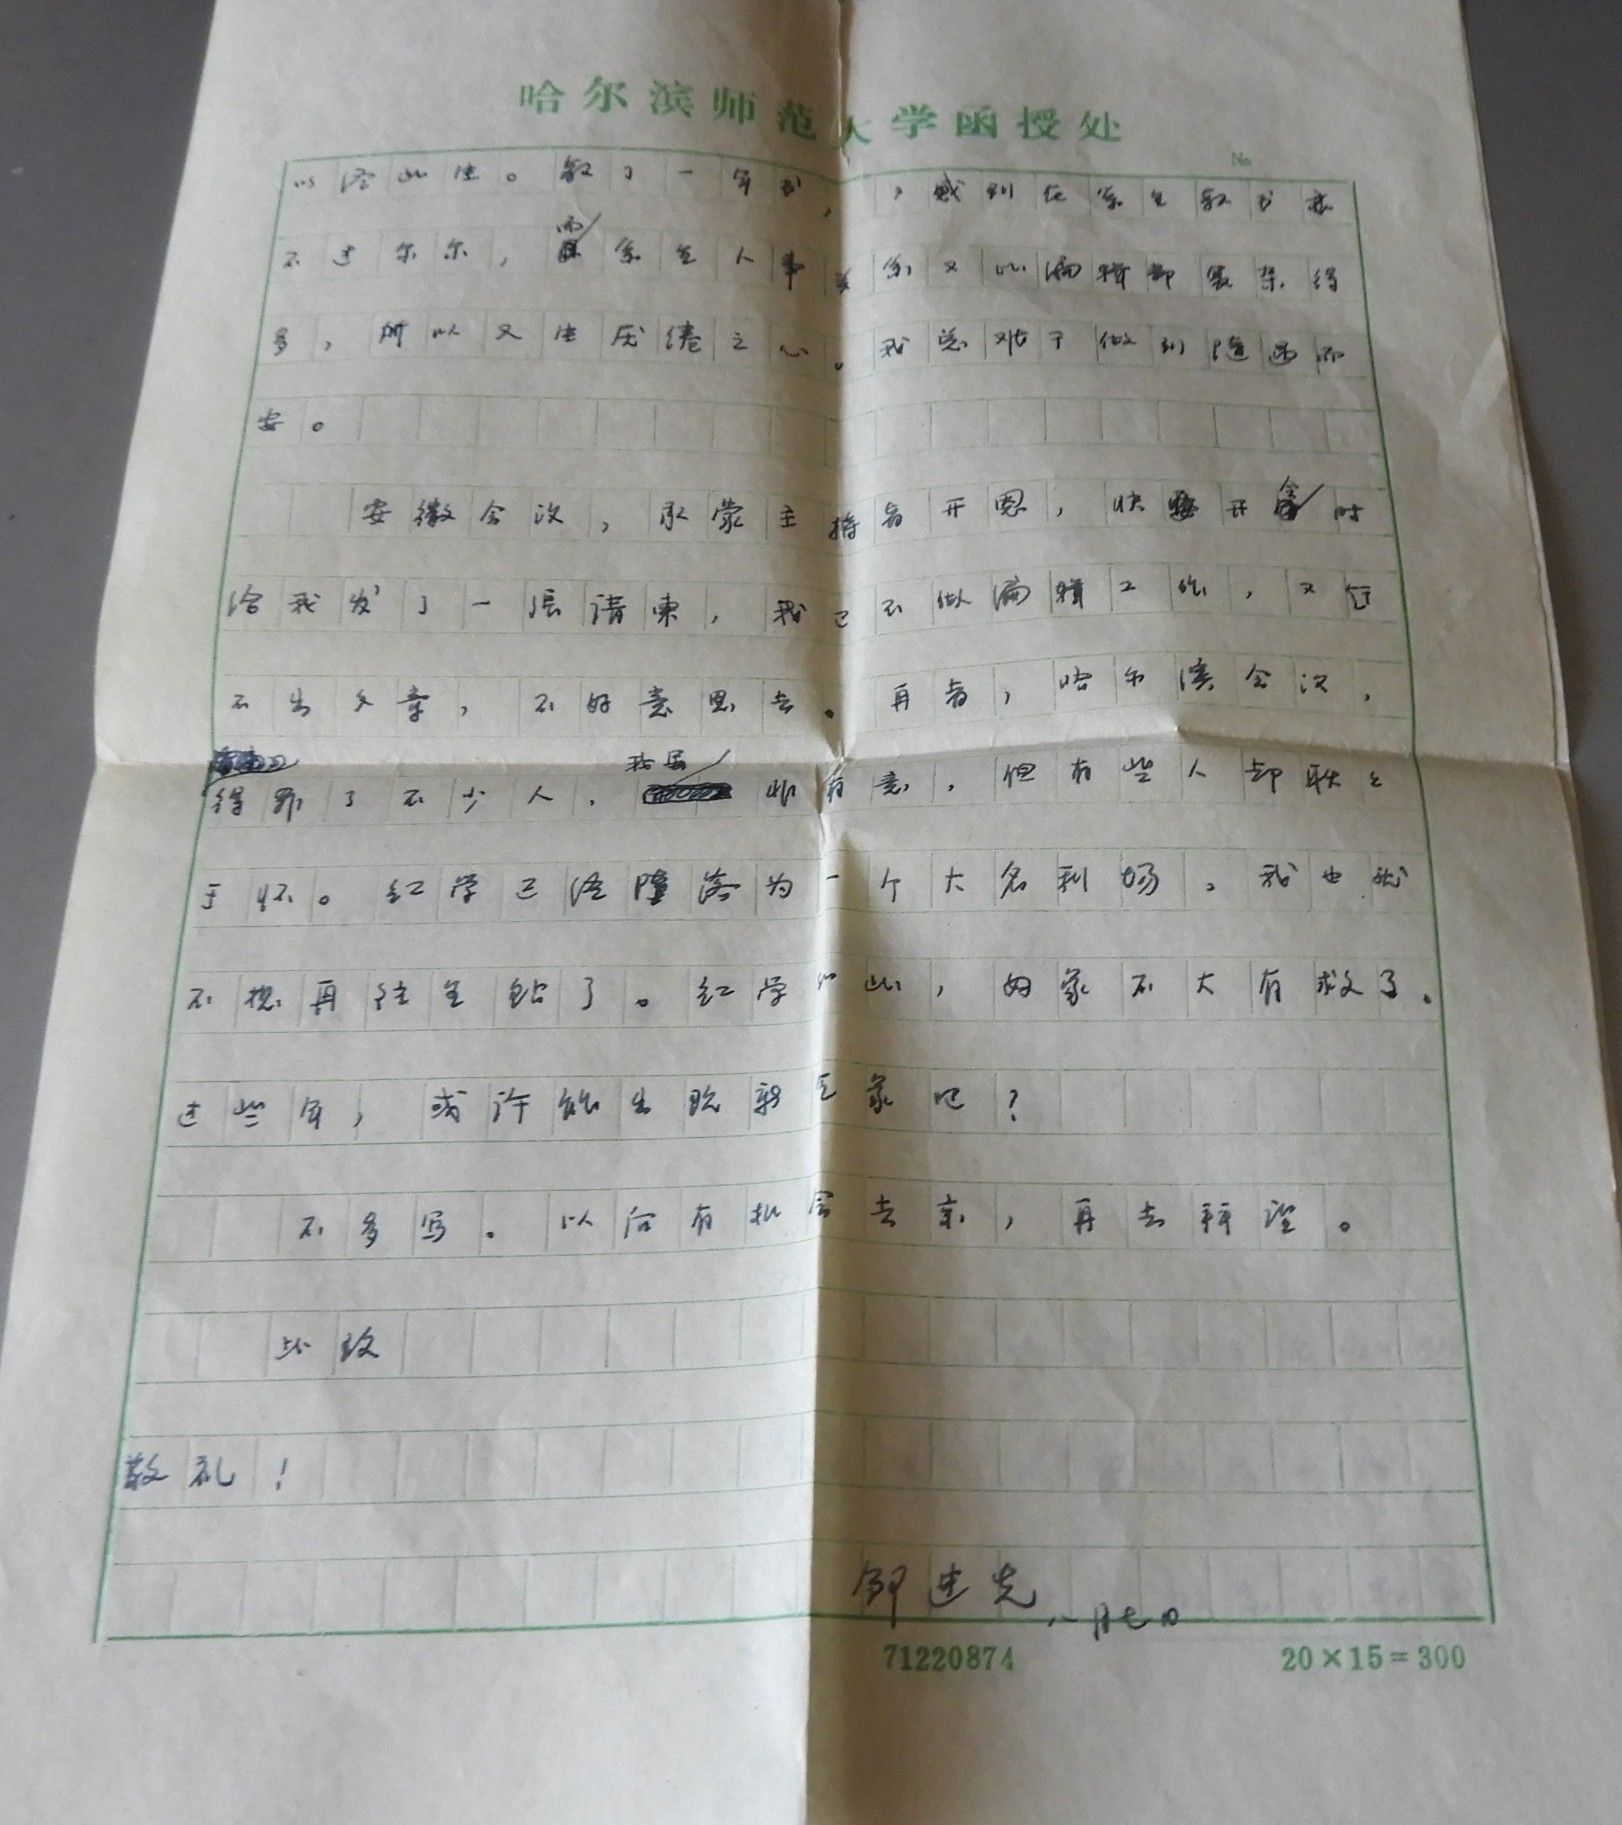 哈尔滨师范大学函授处
No
以终此生。教了一年书,,感到在系里教书亦
不过尔尔,而系里人事关系又比编辑部复杂得
多,所以又生厌倦之心。我总难于做到随遇而
安。
安徽会议,承蒙主持者开恩,快开会时
给我发了一张请柬,我已不做编辑工作,又写
不出文章,不好意思去。再者,哈尔滨会议,
得罪了不少人,我虽非有意,但有些人却耿耿
于怀。红学已经堕落为一个大名利场。我也就
不想再往里钻了。红学如此,好象不大有救了。
过些年,或许能出现新玩家吧?
不多写。以后有机会去京,再去拜望。
此致
敬礼!
邹进先 八月七日
71220874
20×15=300